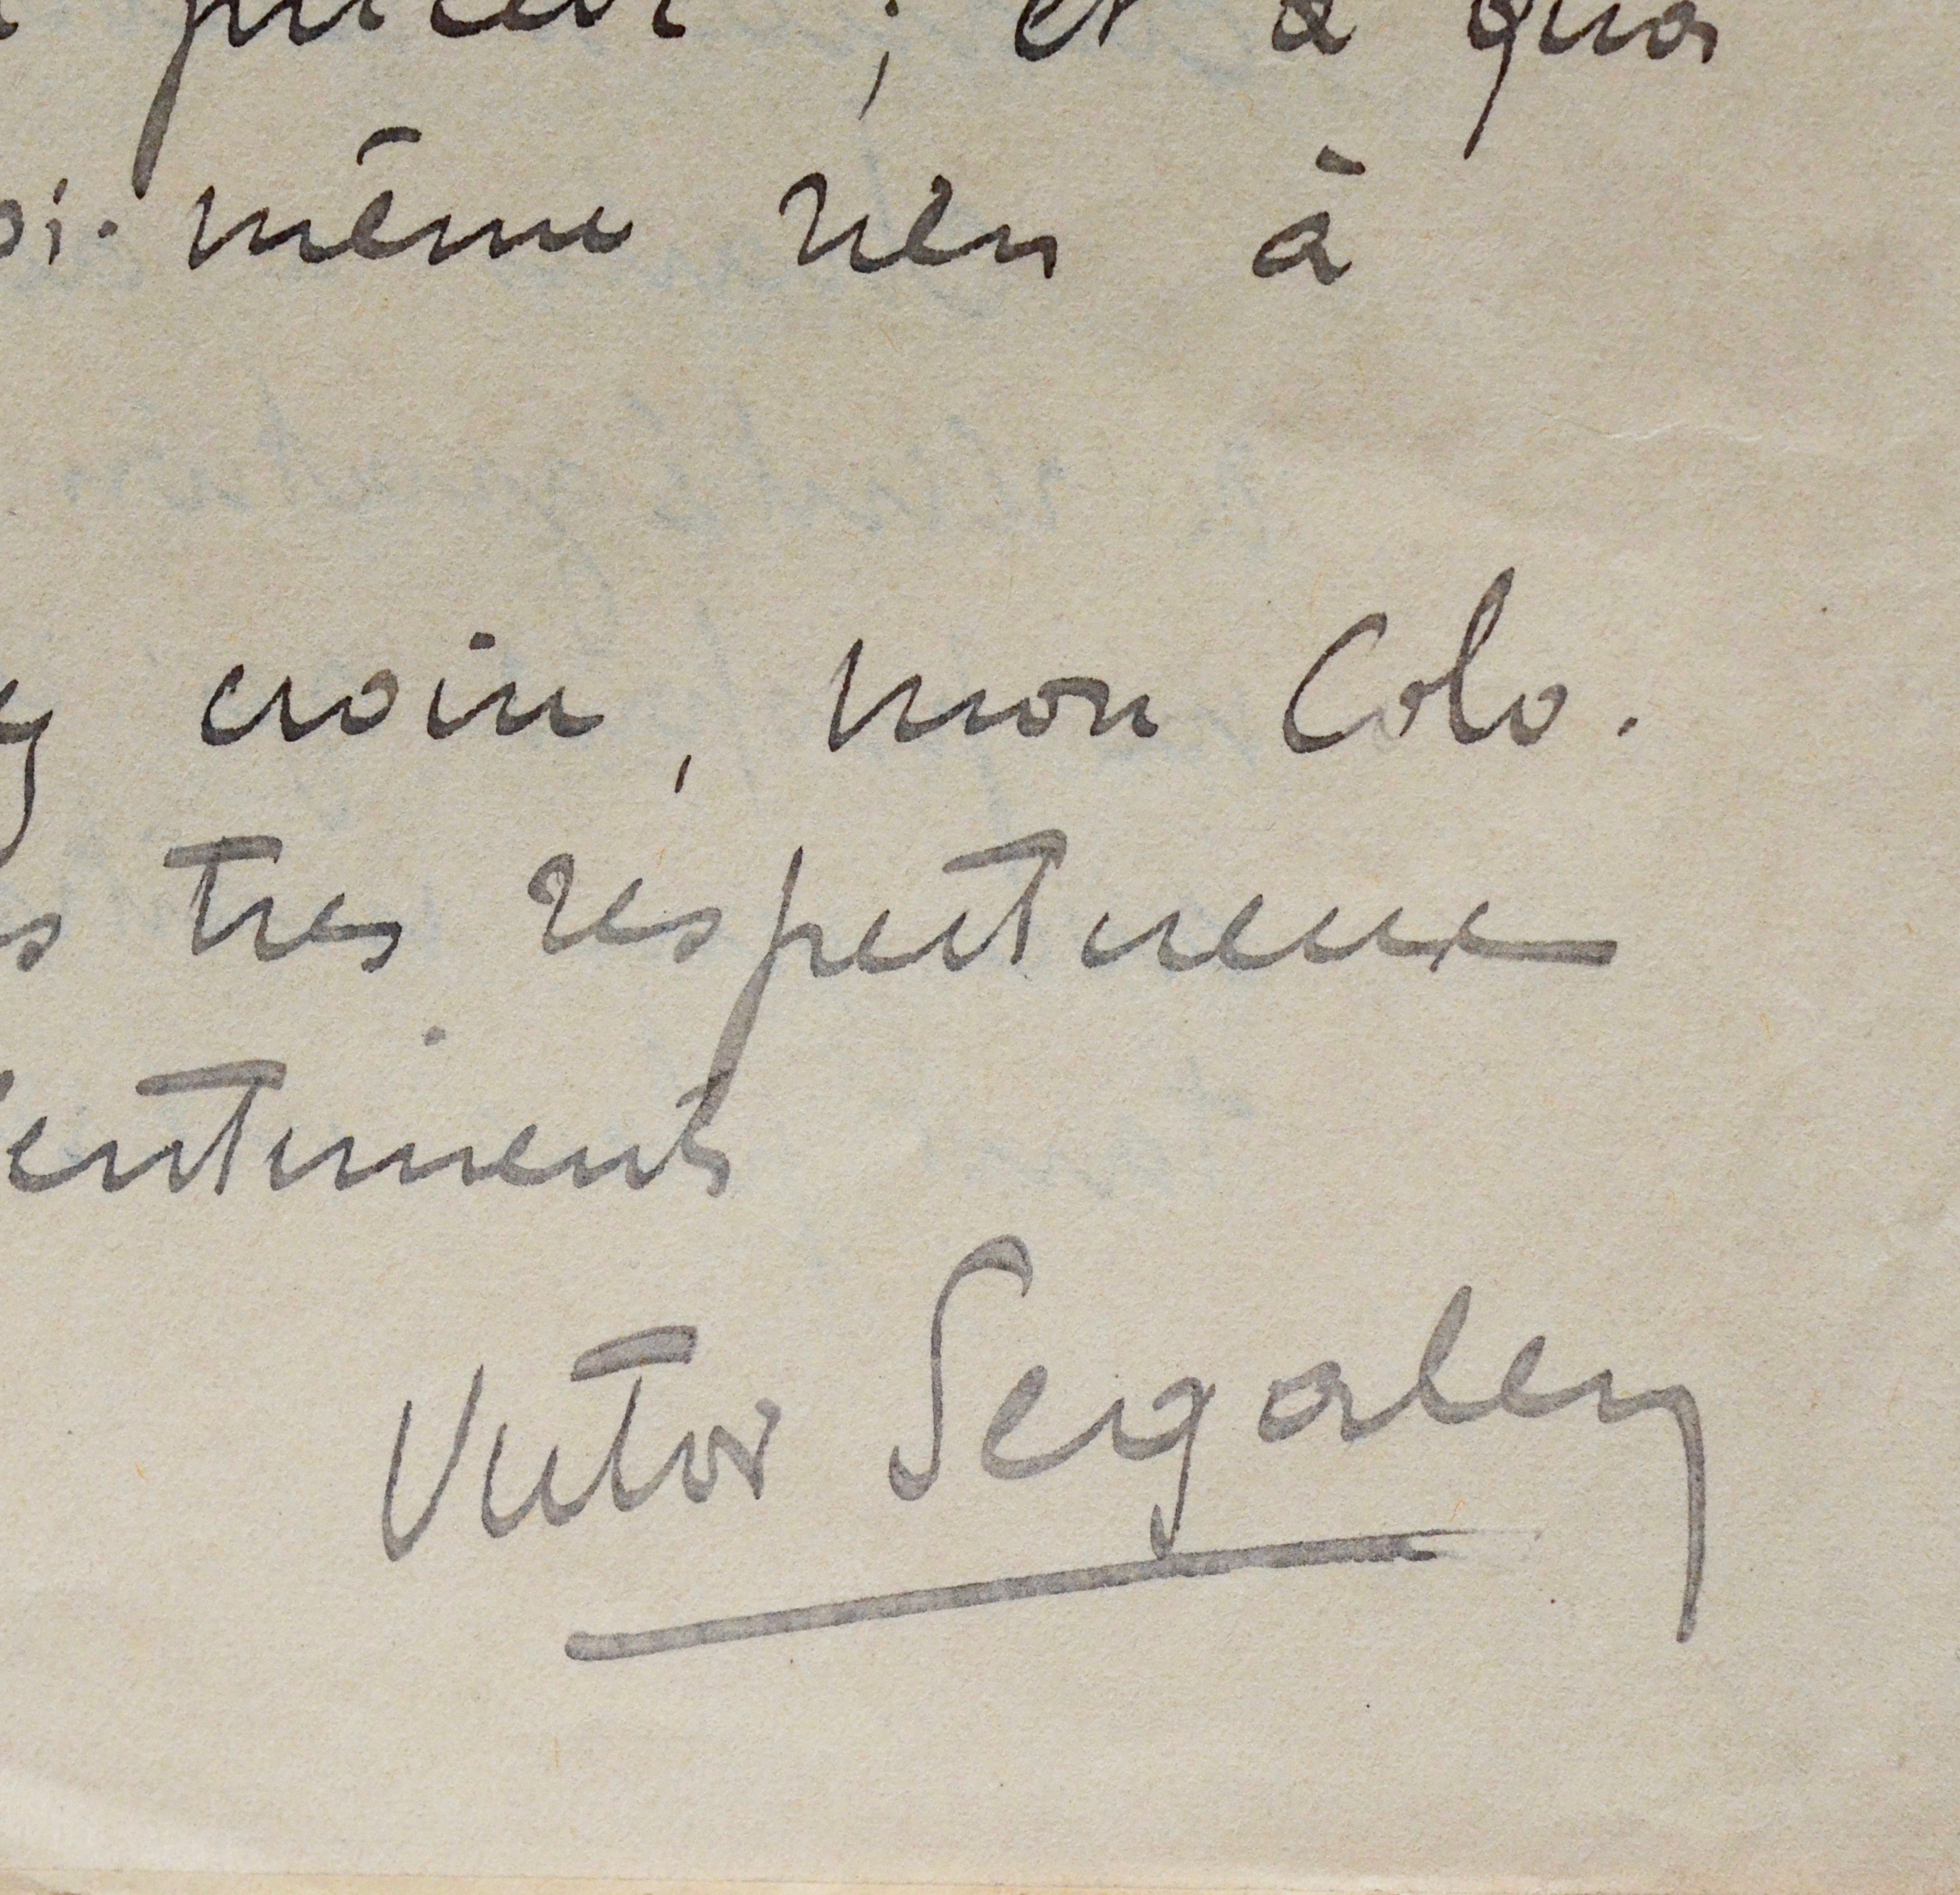 ; et à quoi
oi-même rien à
croire, mon Colo-
s très respectueux
sentiments
Victor Segalen